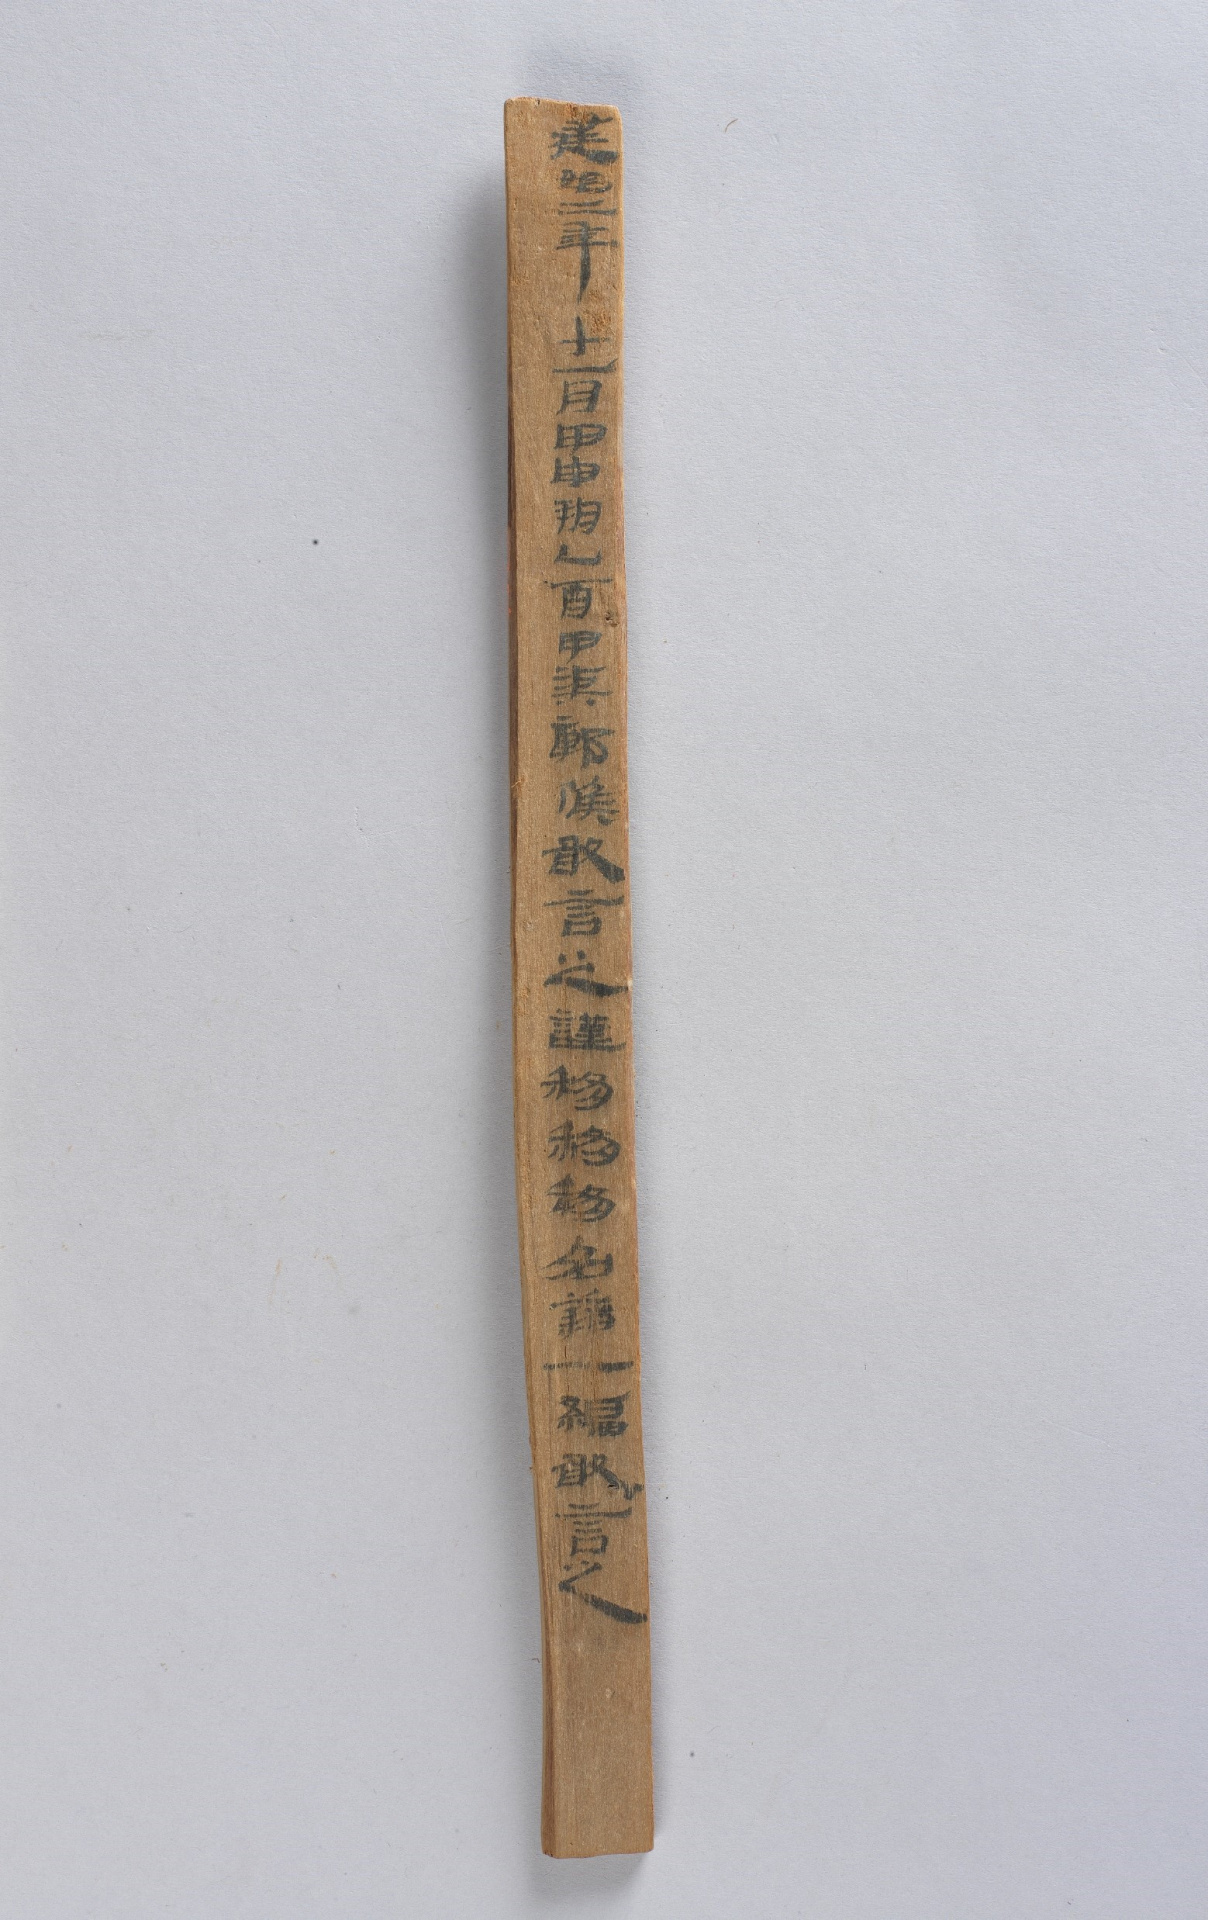 建昭二年十一月甲申朔乙酉甲渠鄣候敢言之謹移移移名籍一編敢言之